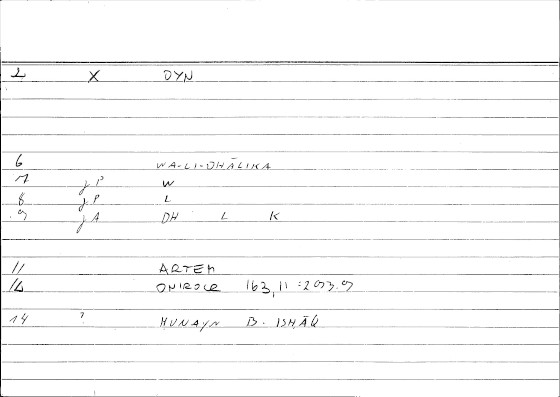 2 X DYN
6 WA-LI-DHĀLIKA
7 jP W
8 jP L
9 jA DH L K
11 ARTEM
12 ONIROCR 163,11 : 293.9
14 ? HUNAYN B. ISHĀQ